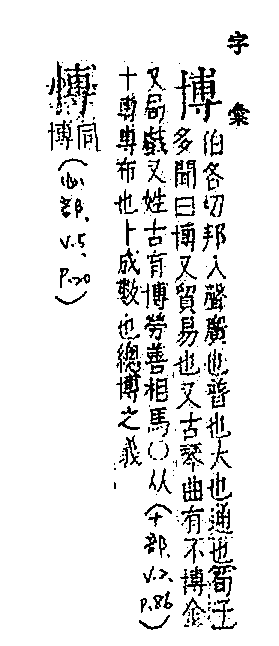 字彙
博 伯各切邦入聲廣也普也大也通也荀子
多聞曰博又貿易也又古琴曲有不博金
又局戲又姓古有博勞善相馬○从
十尃尃布也十成數也總博之義
(十部、V.2、P.86)
愽 同博
(心部、V.5、P.20)